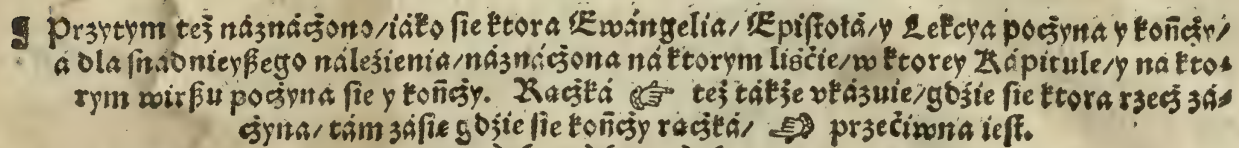 ¶ Przytym też náznáczono/iáko sie ktora Ewángelia/ Epistołá/y Lekcya poczyna y kończy/
a dla snadnieyßego nálezienia/náznáczona ná ktorym liśćie/w ktorey Kápitule/y ná kto-
rym wirßu poczyna sie y kończy. Raczká ☞ też tákże vkázuie/gdzie sie ktora rzecz zá-
czyna/ tám záśie gdzie sie kończy raczká/ ☜ przećiwna iest.